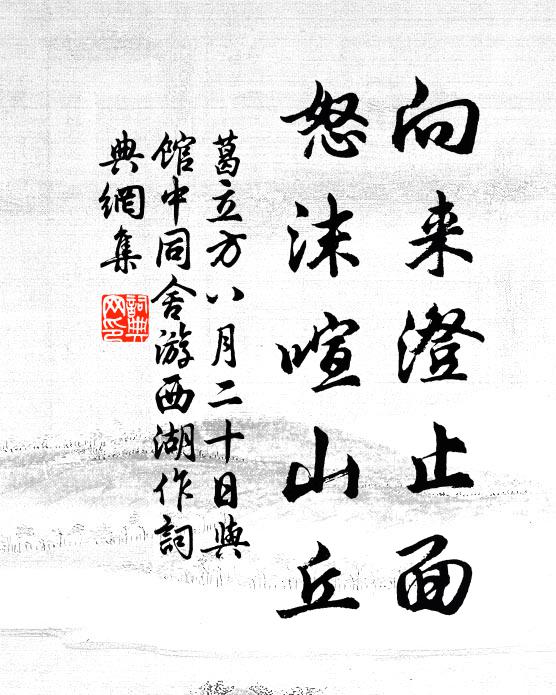 向来澄止面
怒沫喧山丘
葛立方八月二十日與
馆中同舍游西湖作詞
典網集
詞典
网印